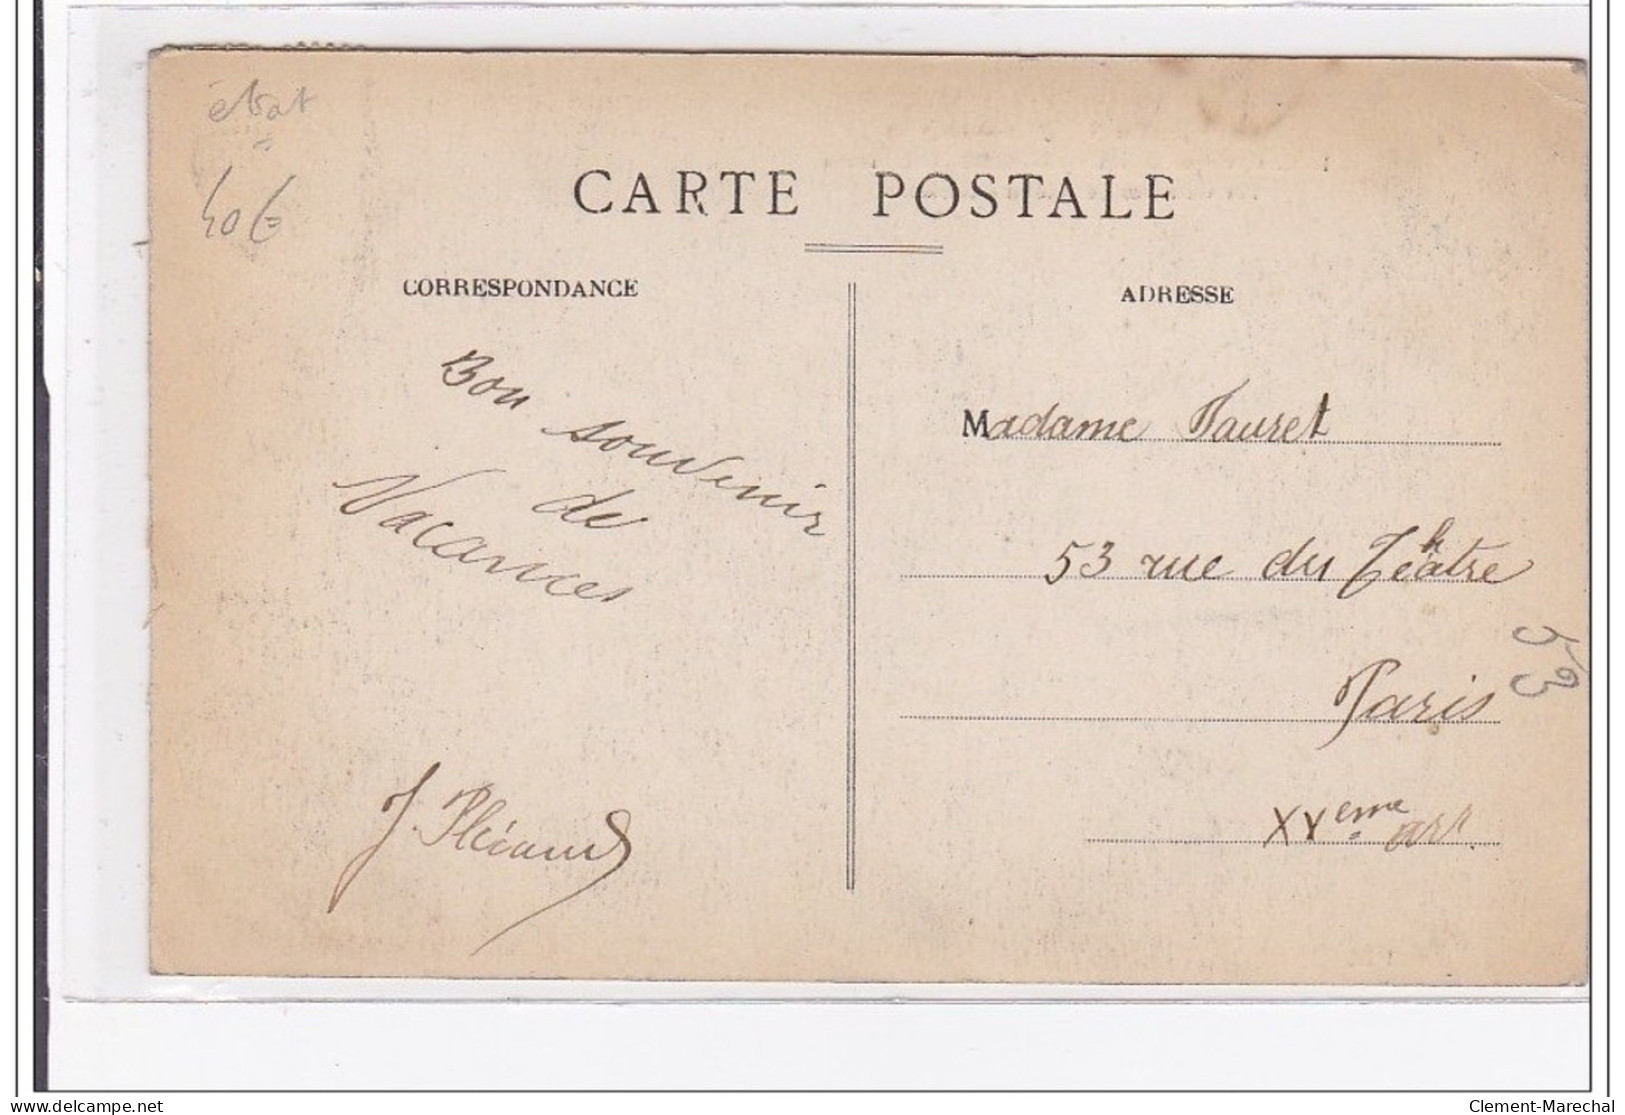 état
40€
CARTE POSTALE
CORRESPONDANCE
Bon souvenir
de
Vacances
ADRESSE
Madame Fauret
53 rue du Théatre
Paris
XVeme arr.
53
delcampe.net
Clement-Marechal